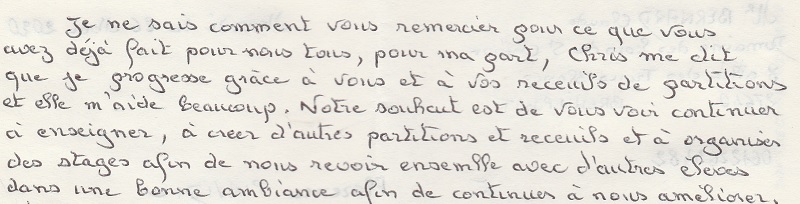 Je ne sais comment vous remercier pour ce que vous
avez déjà fait pour nous tous, pour ma part, Chris me dit
que je progresse grâce à vous et à vos recueils de partitions
et elle m'aide beaucoup. Notre souhait est de vous voir continuer
à enseigner, à creer d'autres partitions et recueils et à organiser
des stages afin de nous revoir ensemble avec d'autres élèves
dans une bonne ambiance afin de continuer à nous améliorer.